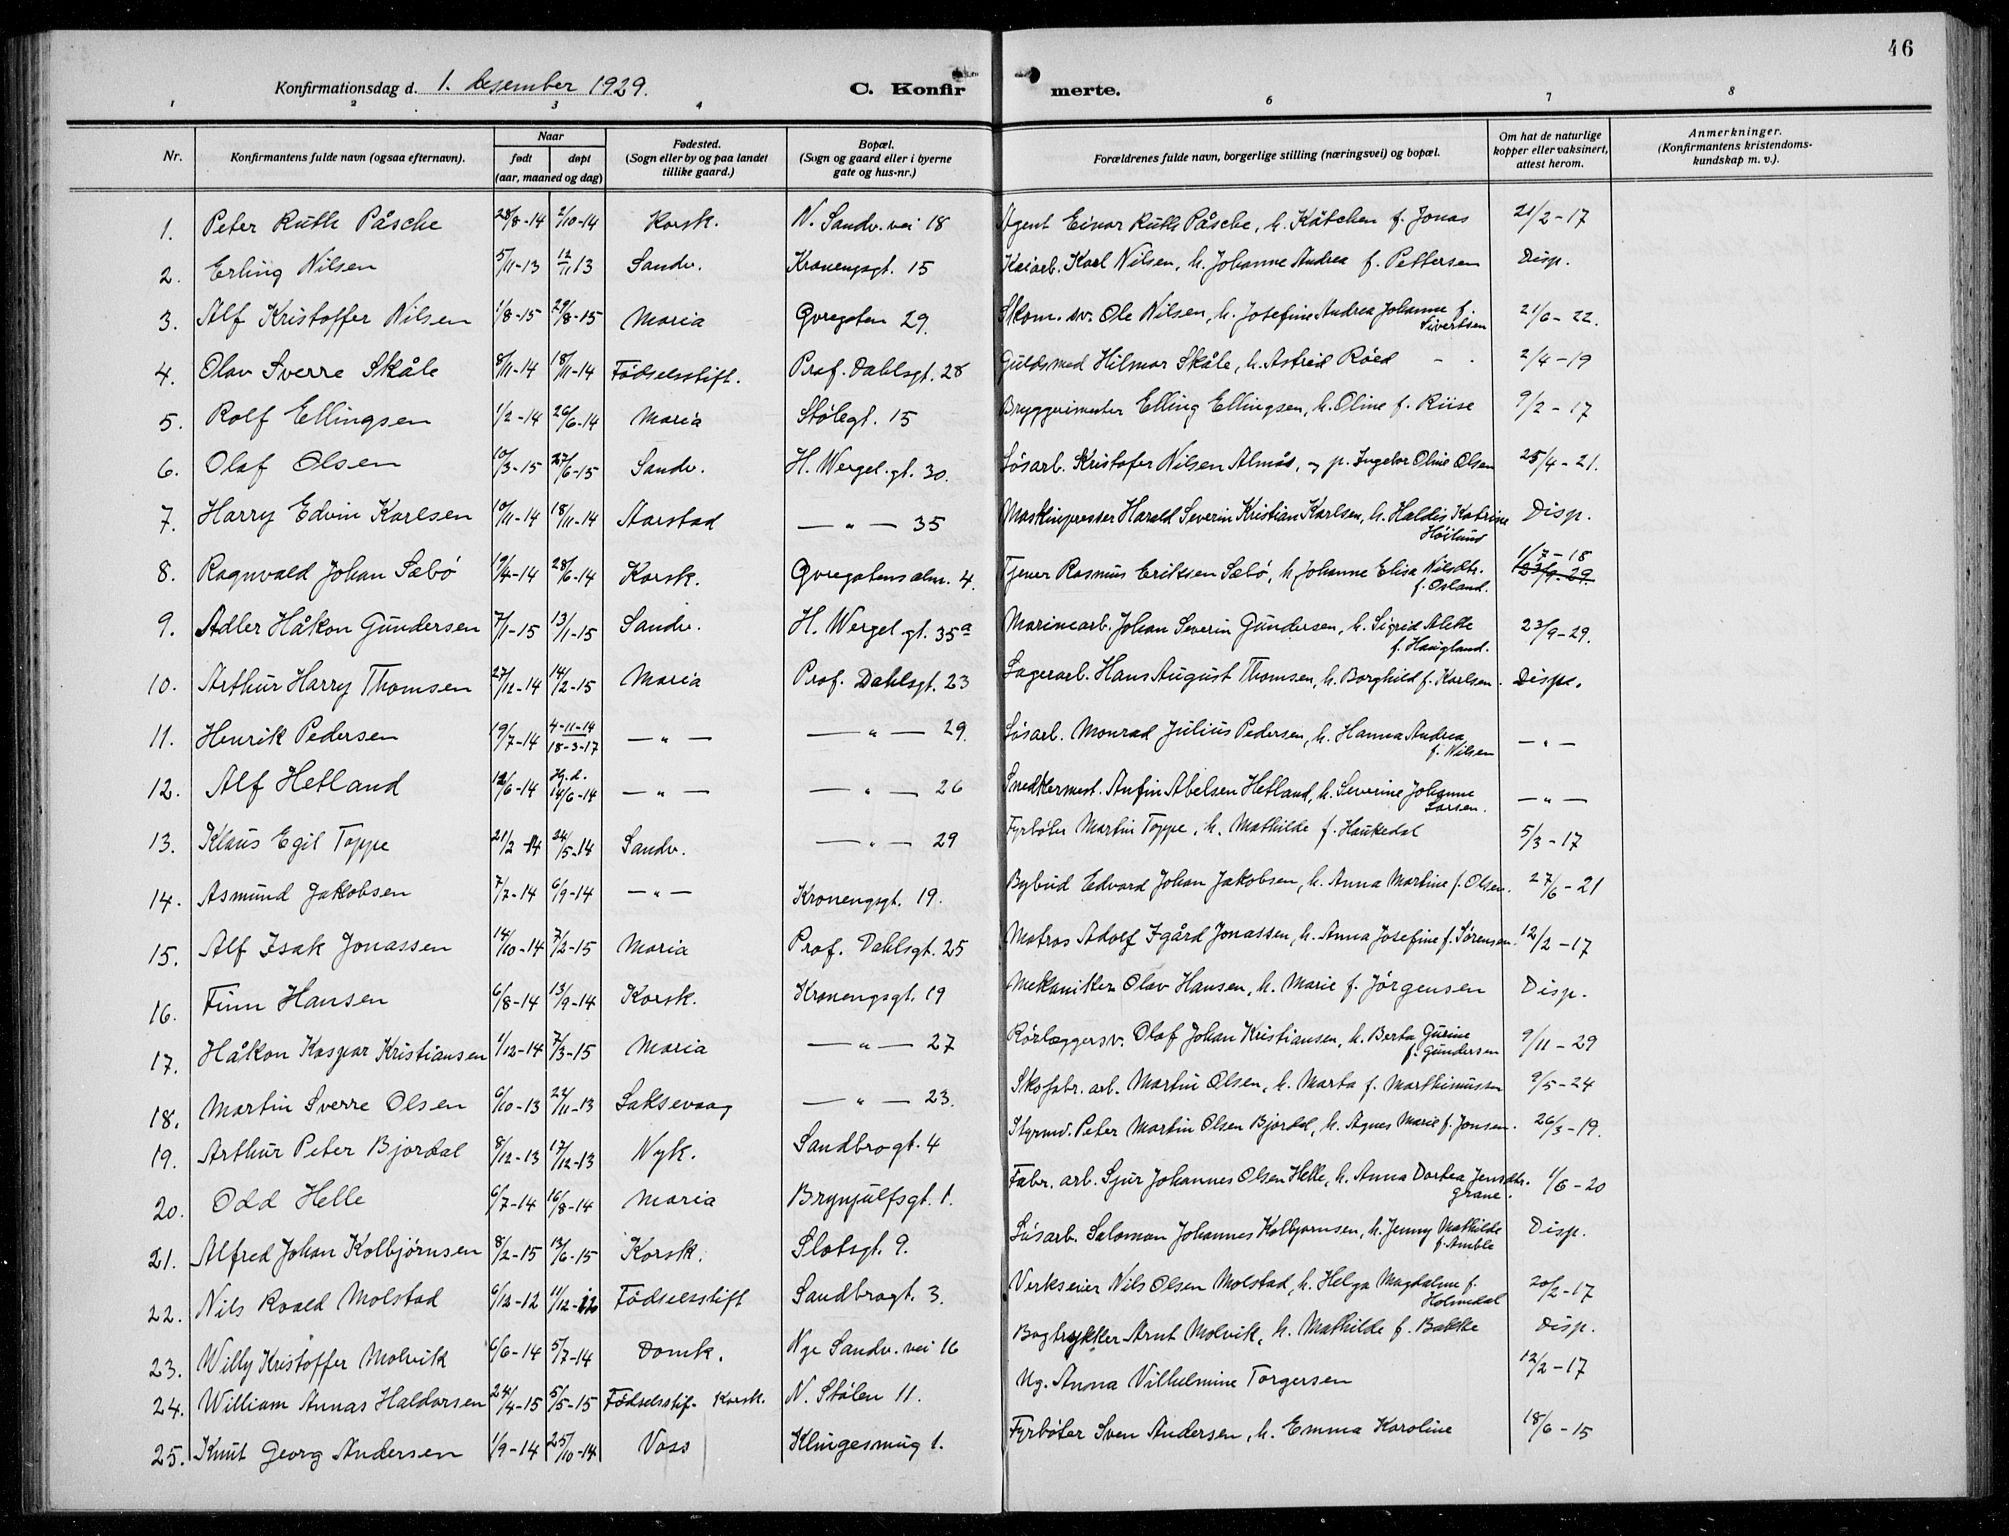 46
Konfirmationsdag d. 1. desember 1929. C. Konfirmerte.
1 2 3 4 6 7 8
Nr. Konfirmantens fulde navn (ogsaa efternavn). Naar født døpt (aar, maaned og dag) Fødested. (Sogn eller by og paa landet tillike gaard.) Bopæl. (Sogn og gaard eller i byerne gate og hus-nr.) Forældrenes fulde navn, borgerlige stilling (næringsvei) og bopæl. Om hat de naturlige kopper eller vaksinert, attest herom. Anmerkninger. (Konfirmantens kristendomskundskap m. v.).
1. Peter Ruth Påsche 28/8-14 2/10-14 Korsk. N. Sandv. vei 18 Agent Einar Ruth Påsche, h. Kåtchen f. Jonas 21/2-17
2. Erling Nilsen 5/11-13 12/11 13 Sandv. Kronengsgt. 15 Kaiarb. Karl Nilsen, h. Johanne Andrea f. Pettersen Disp.
3. Alf Kristoffer Nilsen 1/8-15 29/8-15 Maria Øvregaten 29. Skom. sv. Ole Nilsen, h. Josefine Andrea Johanne f. Sivertsen 21/6-22.
4. Olav Sverre Skåle 8/11-14 18/11-14 Födselsstift. Prof. Dahlsgt. 28 Guldsmed Hilmar Skåle, h. Astrid Röed 2/4-19
5. Rolf Ellingsen 1/2-14 26/6-14 Maria Stølegt. 15 Bryggerimester Elling Ellingsen, h. Oline f. Riise 9/2-17
6. Olaf Olsen 10/3-15 27/6-15 Sandv. H. Wergel. gt. 30. Løsarb. Kristofer Nilsen Almås, og p. Ingebor Oline Olsen 25/4-21.
7. Harry Edvin Karlsen 10/11-14 18/11-14 Aarstad — " — 35 Maskinpresser Harald Severin Kristian Karlsen, h. Haldis Katrine Höilund Disp.
8. Ragnvald Johan Sæbö 19/4-14 28/6-14 Korsk. Øvregatens alm. 4. Tjener Rasmus Eriksen Sæbö, h. Johanne Elisa Nilsdtr. f. Osland. 1/7-18 23/9-29.
9. Adler Håkon Gundersen 7/1-15 13/1-15 Sandv. H. Wergel. gt. 35a Marinearb. Johan Severin Gundersen, h. Sigrid Alette f. Haugland. 23/9-29.
10. Arthur Harry Thomsen 27/12-14 14/2-15 Maria Prof. Dahlsgt. 23 Lagerarb. Hans August Thomsen, h. Borghild f. Karlsen. Disp.
11. Henrik Pedersen 19/7-14 4-11-14 18-3-17 — " — — " — 29. Løsarb. Monrad Julius Pedersen, h. Hanna Andrea f. Nilsen — " —
12. Alf Hetland 12/6-14 Hj.d. 14/6-14 — " — — " — 26 Snedkermest. Anfin Abelsen Hetland, h. Severine Johanne Larsen. — " —
13. Klaus Egil Toppe 21/2-14 24/5-14 Sandv. — " — 29 Fyrböter Martin Toppe, h. Mathilde f. Haukedal 5/3-17
14. Asmund Jakobsen 7/7-14 6/9-14 — " — Kronengsgt. 19. Bybud Edvard Johan Jakobsen, h. Anna Martine f. Olsen. 27/6-21
15. Alf Isak Jonassen 14/10-14 7/2-15 Maria Prof. Dahlsgt. 25 Matros Adolf Igård Jonassen, h. Anna Josefine f. Sörensen. 12/2-17
16. Finn Hansen 6/8-14 13/9-14 Korsk. Kronengsgt. 19 Mekaniker Olav Hansen, h. Marie f. Jörgensen Disp.
17. Håkon Kaspar Kristiansen 1/12-14 7/3-15 Maria — " — 27 Rörlæggersv. Olaf Johan Kristiansen, h. Berta Gurine f. Gundersen 9/11-29
18. Martin Sverre Olsen 6/10-13 22/11-13 Laksevaag — " — 23. Skofabr. arb. Martin Olsen, h. Marta f. Marthinussen 9/5-24
19. Arthur Peter Bjordal 8/12-13 17/12-13 Nyk. Sandbrogt. 4 Styrmd. Peter Martin Olsen Bjordal, h. Agnes Marie f. Jonsen. 26/3-19.
20. Odd Helle 6/7-14 16/8-14 Maria Brynjulfsgt. 1. Fabr. arb. Sjur Johannes Olsen Helle, h. Anna Dortea Jensdtr. Grane. 1/6-20
21. Alfred Johan Kolbjörnsen 8/2-15 13/6-15 Korsk. Slotsgt. 9. Løsarb. Salomon Johannes Kolbjørnsen, h. Jenny Mathilde f. Amble Disp.
22. Nils Roald Molstad 6/12-12 11/12-12 Födselsstift Sandbrogt. 3. Verkseier Nils Olsen Molstad, h. Helga Magdalene f. Holmedal 20/2-17
23. Willy Kristoffer Molvik 6/6-14 5/7-14 Domk. Nye Sandv. vei 16 Bogtrykker Arnt Molvik, h. Mathilde f. Bakke Disp.
24. William Annas Haldorsen 24/4-15 5/5-15 Födselsstif- Korsk. N. Stölen 11. Ug. Anna Vilhelmine Torgersen 12/2-17
25. Knut Georg Andersen 1/9-14 25/10-14 Voss Klingesmug 1. Fyrböter Sven Andersen, h. Emma Karoline 18/6-15